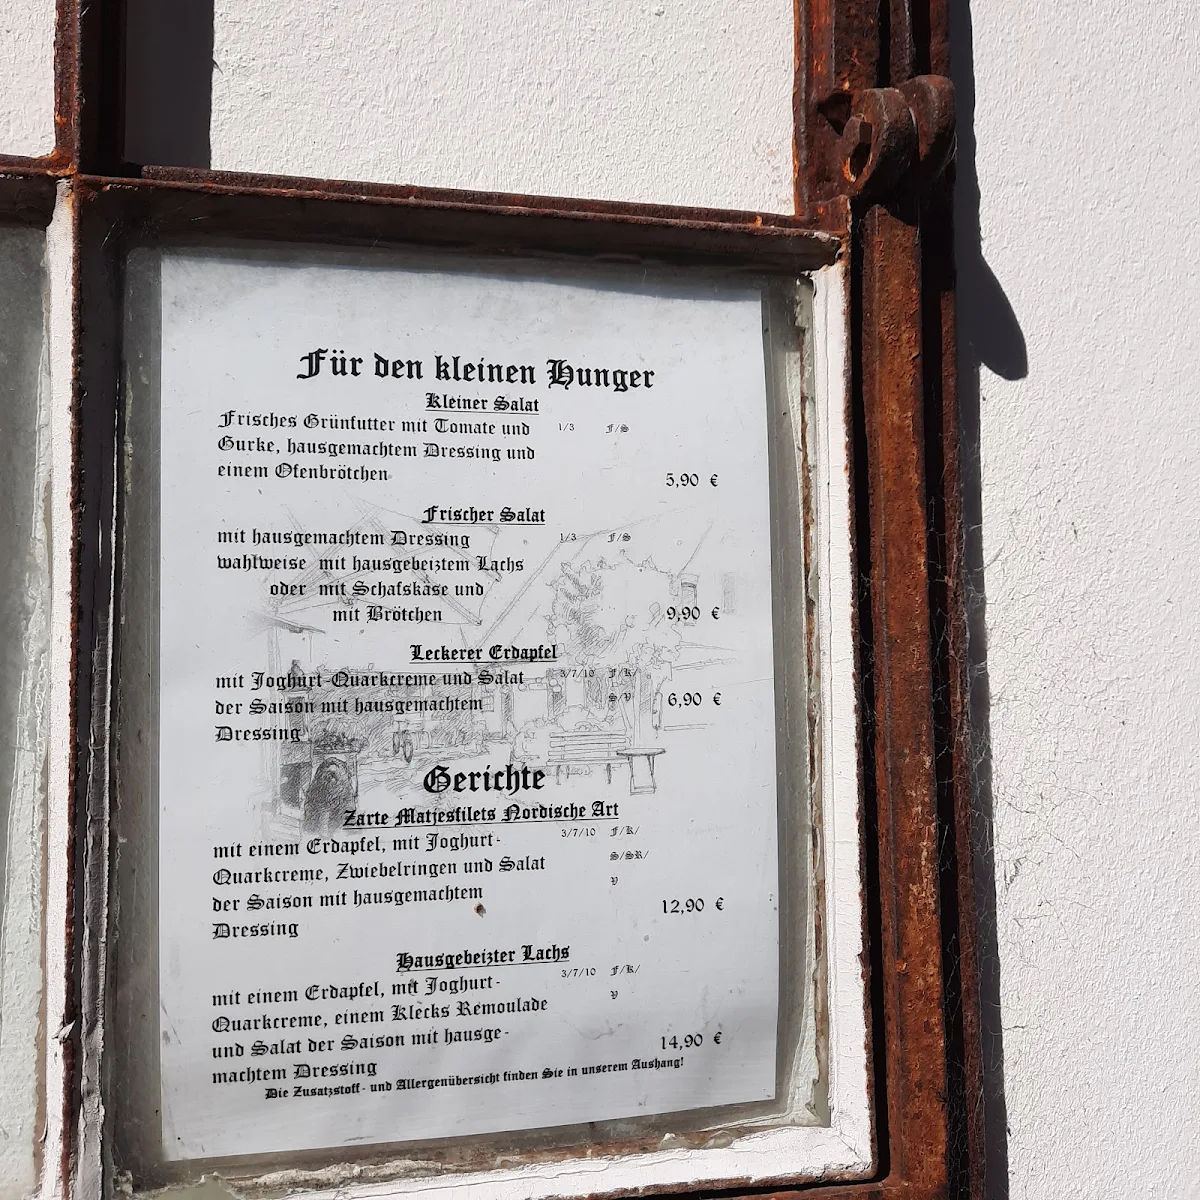 Für den kleinen Hunger
Kleiner Salat
Frisches Grünfutter mit Tomate und 1/3 F/S
Gurke, hausgemachtem Dressing und
einem Ofenbrötchen 5,90 €
Frischer Salat
mit hausgemachtem Dressing 1/3 F/S
wahlweise mit hausgebeiztem Lachs
oder mit Schafskäse und
mit Brötchen 9,90 €
Leckerer Erdapfel
mit Joghurt-Quarkcreme und Salat 3/7/10 F/K/
der Saison mit hausgemachtem S/V 6,90 €
Dressing
Gerichte
Zarte Matjesfilets Nordische Art
mit einem Erdapfel, mit Joghurt- 3/7/10 F/K/
Quarkcreme, Zwiebelringen und Salat S/SR/
der Saison mit hausgemachtem V
Dressing 12,90 €
Hausgebeizter Lachs
mit einem Erdapfel, mit Joghurt- 3/7/10 F/K/
Quarkcreme, einem Klecks Remoulade V
und Salat der Saison mit hausge- 14,90 €
machtem Dressing
Die Zusatzstoff- und Allergenübersicht finden Sie in unserem Aushang!